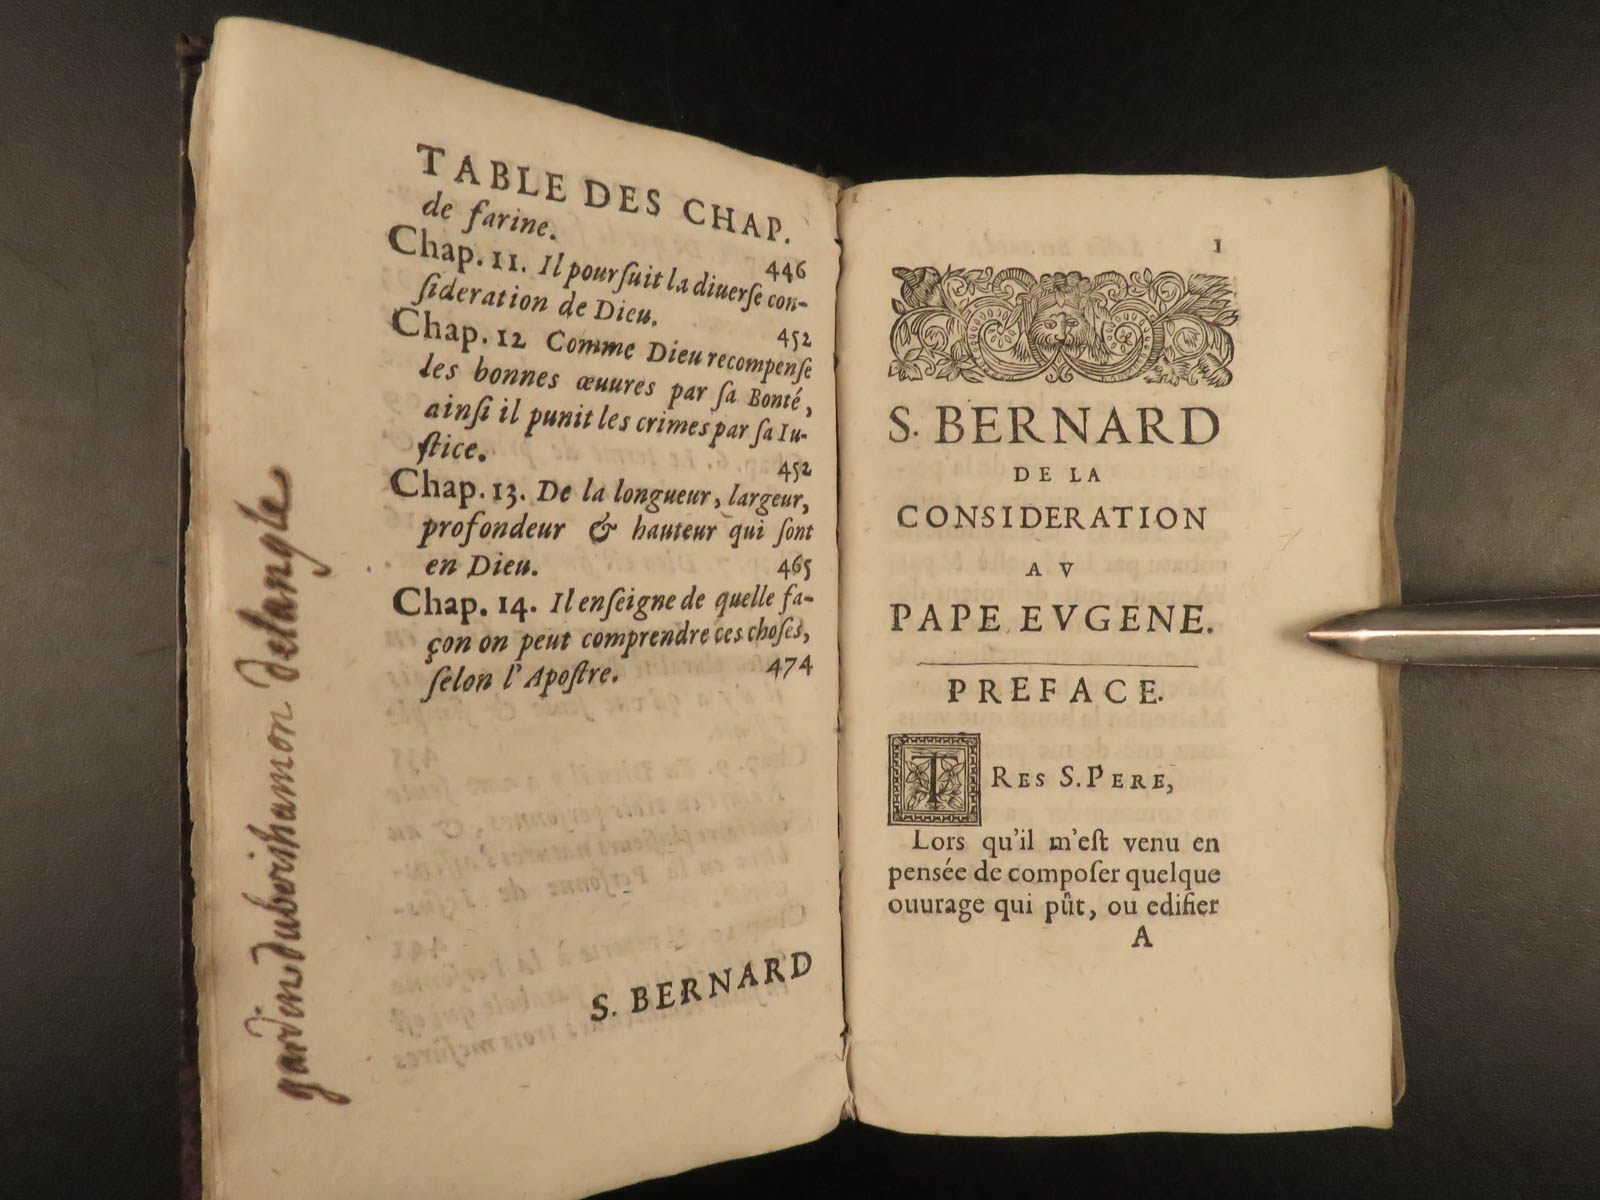 TABLE DES CHAP.
de farine. 446
Chap. 11. Il pourſuit la diuerſe con-
ſideration de Dieu. 452
Chap. 12 Comme Dieu recompenſe
les bonnes œuures par ſa Bonté,
ainſi il punit les crimes par ſa Iu-
ſtice. 452
Chap. 13. De la longueur, largeur,
profondeur & hauteur qui ſont
en Dieu. 465
Chap. 14. Il enſeigne de quelle fa-
çon on peut comprendre ces choſes,
ſelon l'Apoſtre. 474
S. BERNARD
delangle
1
S. BERNARD
DE LA
CONSIDERATION
AV
PAPE EVGENE.
PREFACE.
TRES S. PERE,
Lors qu'il m'eſt venu en
pensée de compoſer quelque
ouurage qui pût, ou edifier
A